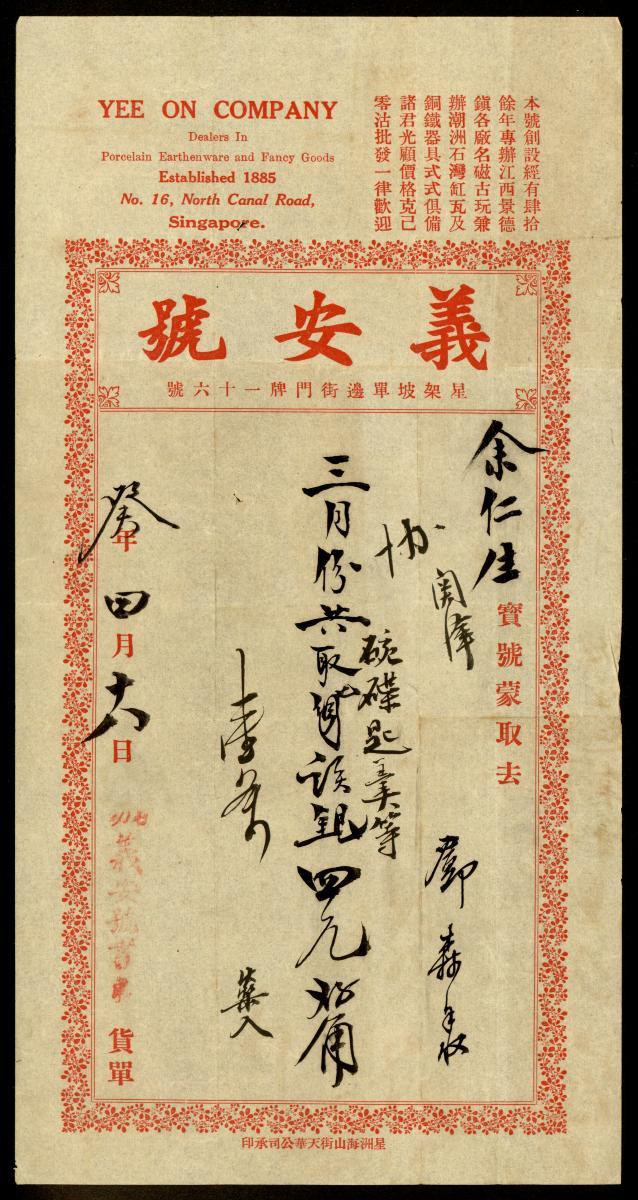 YEE ON COMPANY
Dealers In
Porcelain Earthenware and Fancy Goods
Established 1885
No. 16, North Canal Road,
Singapore.
本號創設經有肆拾
餘年專辦江西景德
鎮各廠名磁古玩兼
辦潮洲石灣缸瓦及
銅鐵器具式式俱備
諸君光顧價格克己
零沽批發一律歡迎
號安義
號六十一牌門街邊單坡架星
余仁生寶號蒙取去
鄧森手收
碗碟匙羹等
三月份共取貨該銀四元
癸年四月十六日
義安號書柬
貨單
印承司公華天街山海洲星